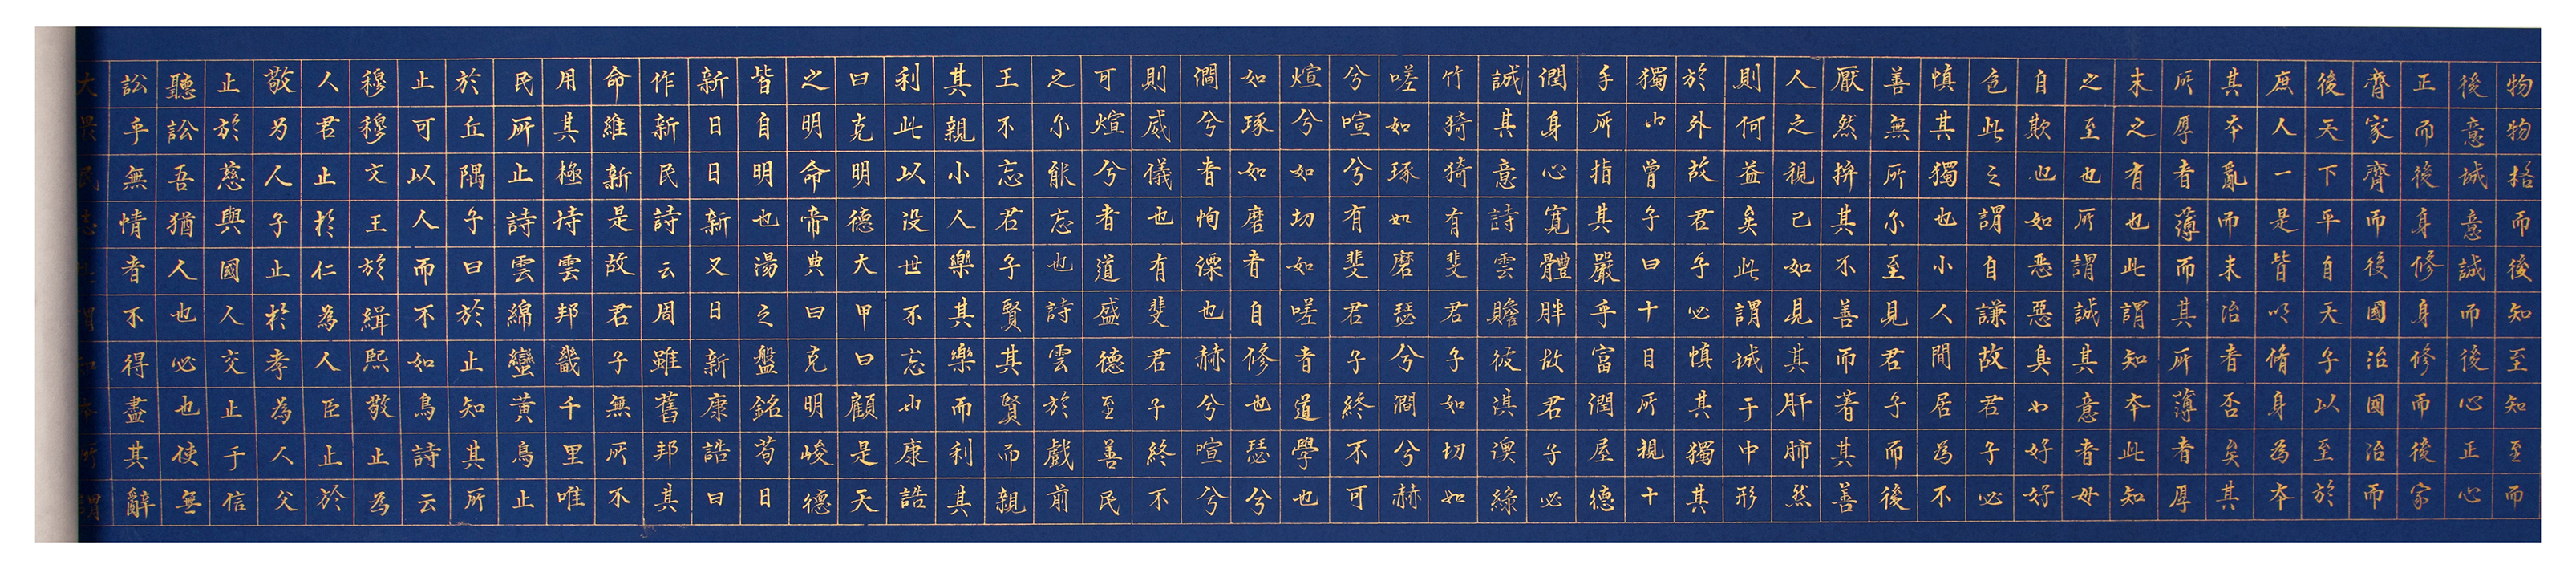 物物格而後知至知至而
後意誠意誠而後心正心
正而後身修身修而後家
齊家齊而後國治國治而
後天下平自天子以至於
庶人一是皆以脩身為本
其本亂而末治者否矣其
所厚者薄而其所薄者厚
未之有也此謂知本此知
之至也所謂誠其意者毋
自欺也如惡惡臭如好好
色此之謂自謙故君子必
慎其獨也小人間居為不
善無所尔至見君子而後
厭然揜其不善而著其善
人之視己如見其肝肺然
則何益矣此謂誠于中形
於外故君子必慎其獨其
獨也曾子曰十目所視十
手所指其嚴乎富潤屋德
潤身心寬體胖故君子必
誠其意詩雲贍彼淇澳綠
竹猗猗有斐君子如切如
嗟如琢如磨瑟兮澗兮赫
兮喧兮有斐君子終不可
煊兮如切如嗟者道學也
如琢如磨者自修也瑟兮
澗兮者恂慄也赫兮喧兮
則威儀也有斐君子終不
可煊兮者道盛德至善民
之尔能忘也詩雲於戲前
王不忘君子賢其賢而親
其親小人樂其樂而利其
利此以沒世不忘也康誥
曰克明德大甲曰顧是天
之明命帝典曰克明峻德
皆自明也湯之盤銘苟日
新日日新又日新康誥曰
作新民詩云周雖舊邦其
命維新是故君子無所不
用其極詩雲邦畿千里唯
民所止詩雲綿蠻黃鳥止
於丘隅子曰於止知其所
止可以人而不如鳥詩云
穆穆文王於緝熙敬止為
人君止於仁為人臣止於
敬為人子止於孝為人父
止於慈與國人交止于信
聽訟吾猶人也必也使無
訟乎無情者不得盡其辭
大畏民志此謂知本所謂